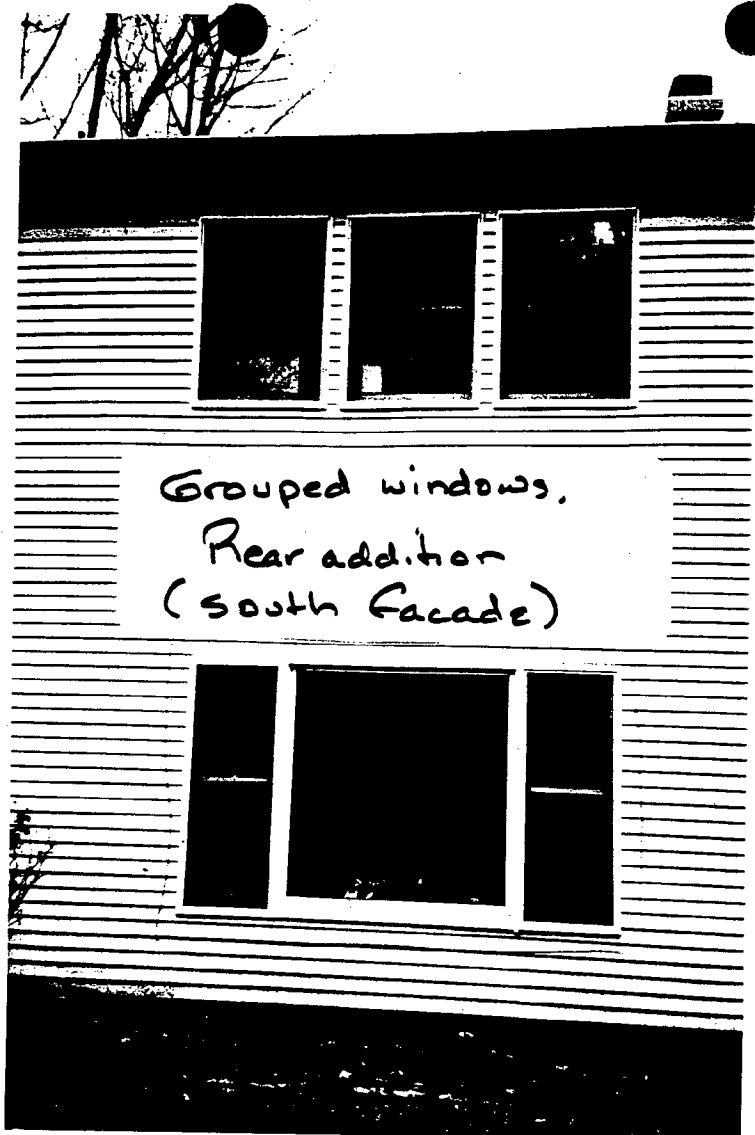 Grouped windows,
Rear addition
(south facade)